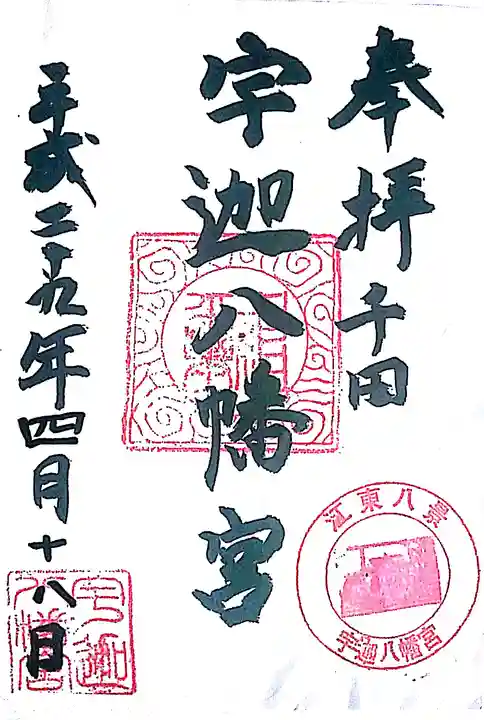 奉拝 千田
宇迦八幡宮
平成二十九年四月十八日
江東八景
宇迦八幡宮
宇迦八幡宮